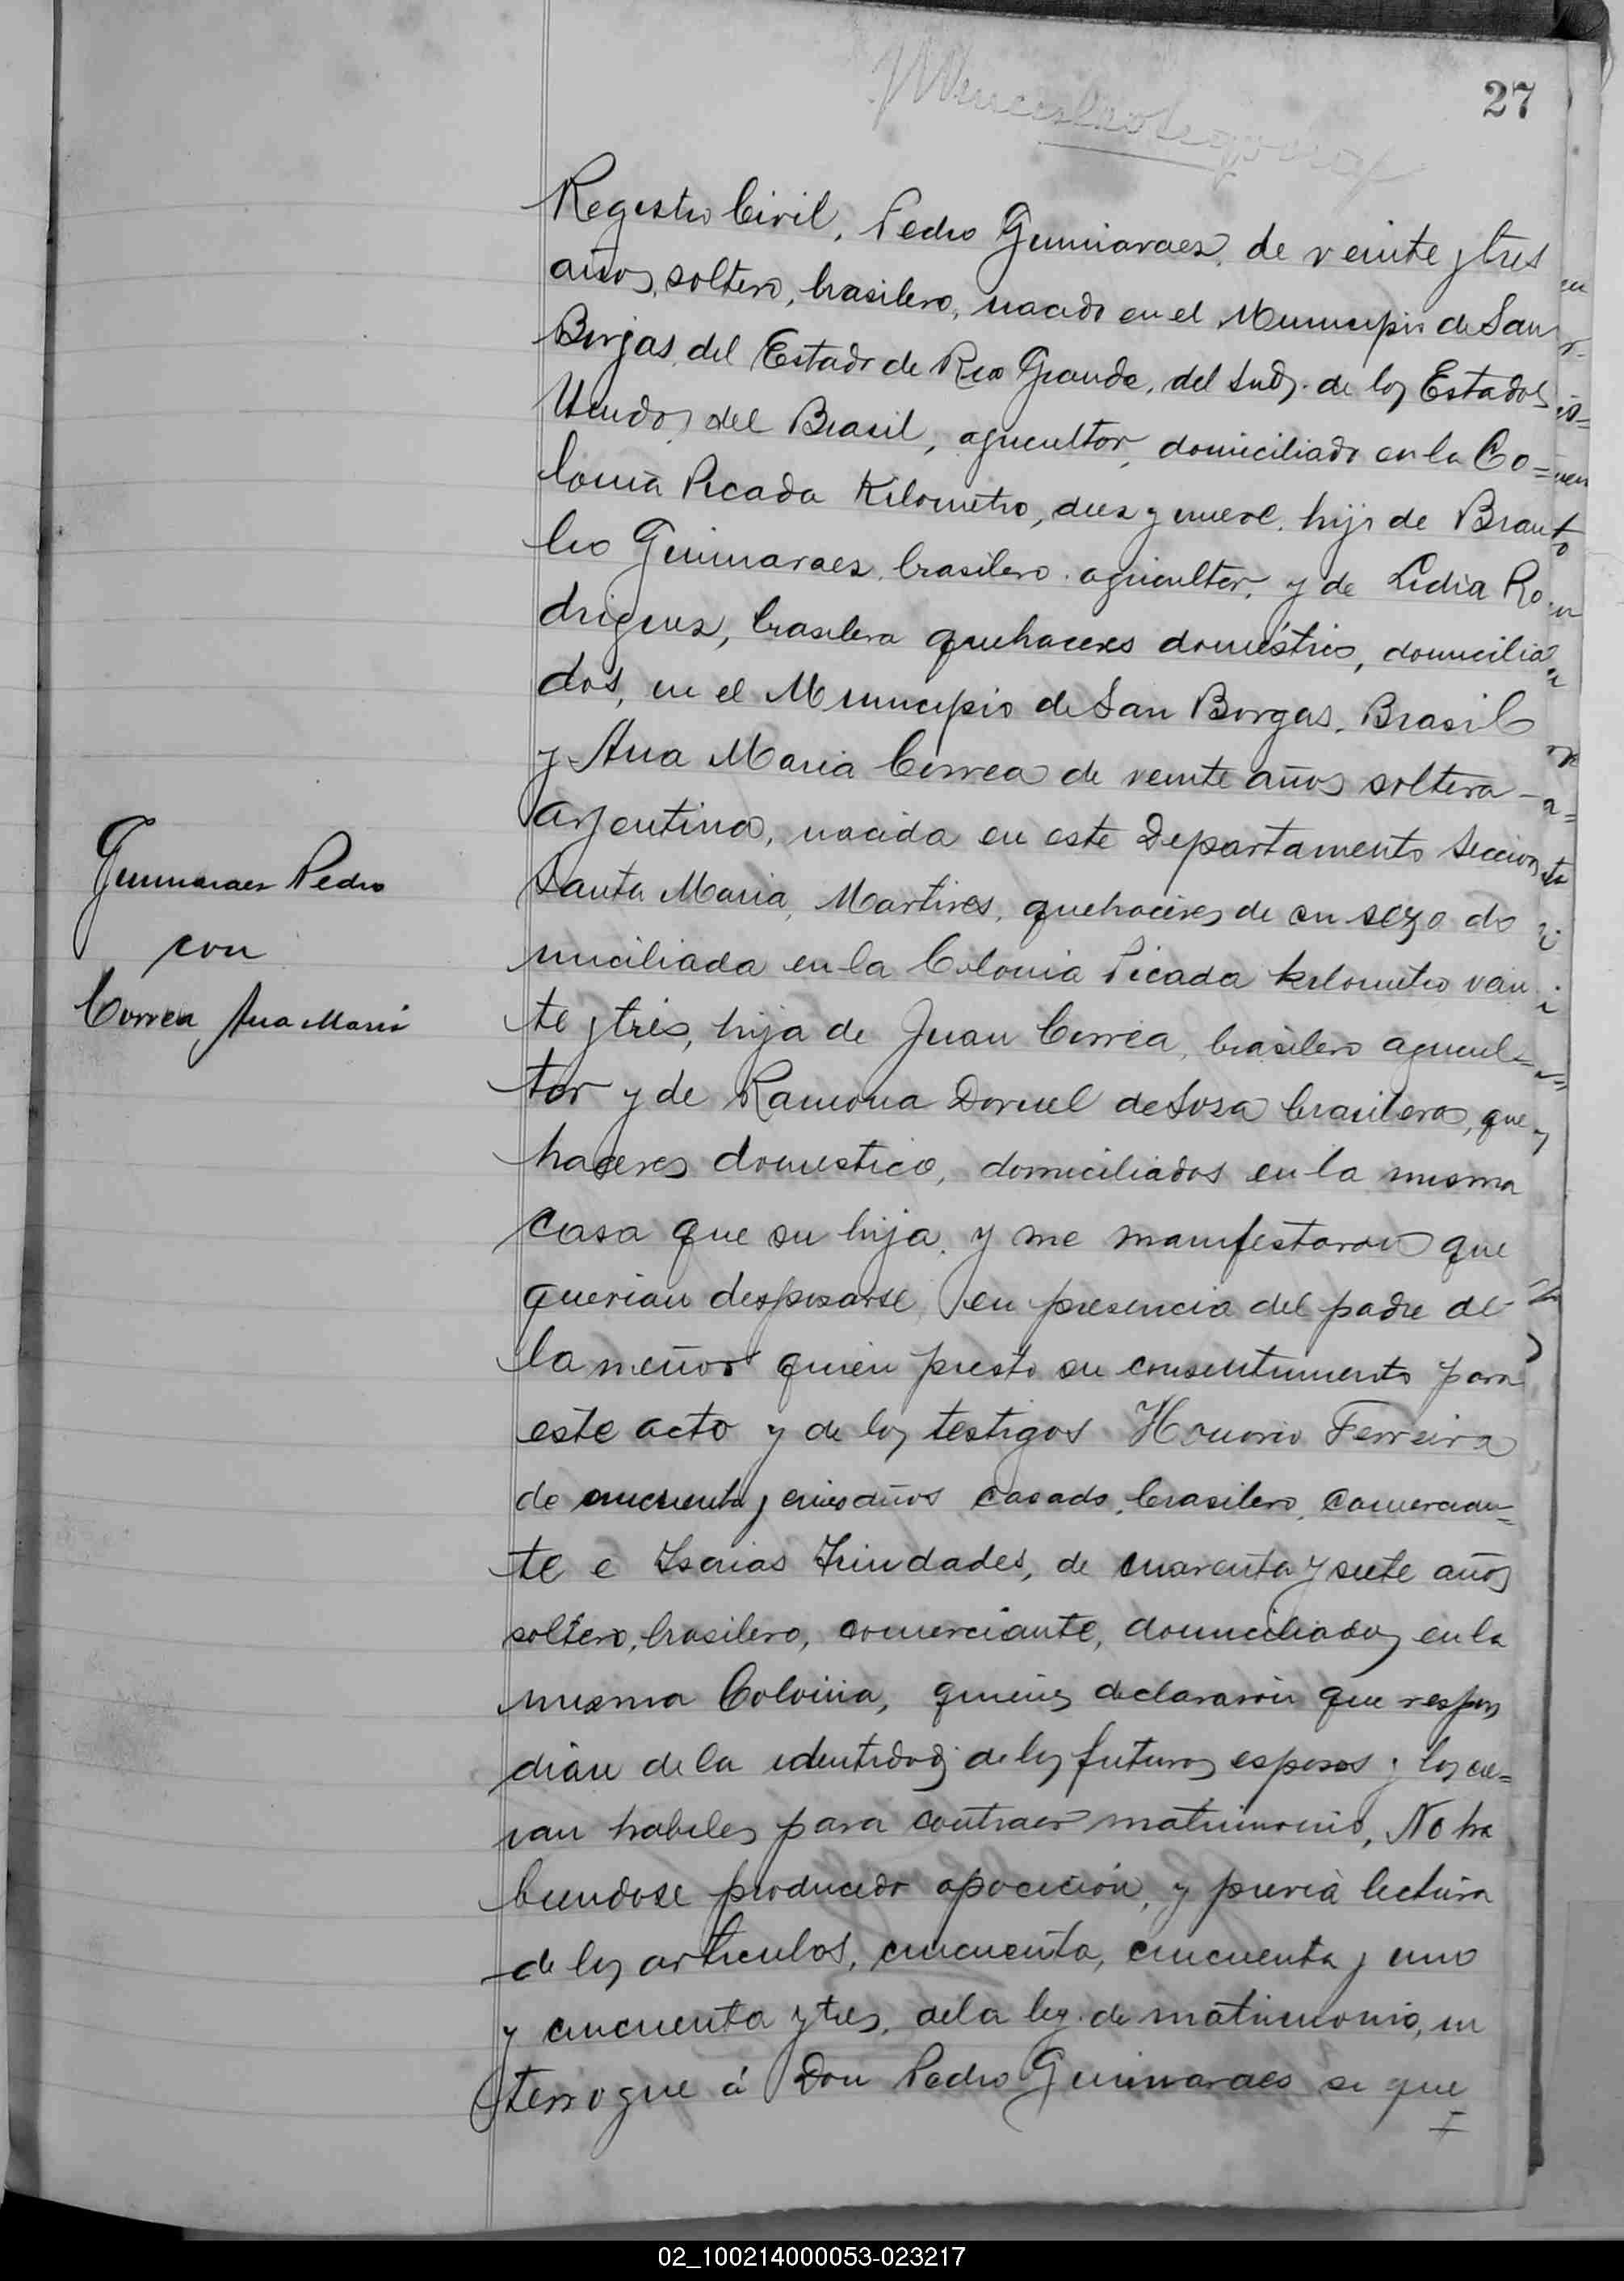 27
Registro Civil, Pedro Guimaraez, de veinte y tres
años, soltero, brasilero, nacido en el Municipio de San
Borjas, del Estado de Rio Grande, del Sud, de los Estados
Unidos del Brasil, agricultor, domiciliado en la Co=
lonia Picada Kilometro, diez y nueve, hijo de Brau
lio Guimaraez, brasilero, agricultor, y de Lidia Ro
driguez, brasilera quehaceres doméstico, domicilia
dos, en el Municipio de San Borgas, Brasil
y Ana Maria Correa de veinte años soltera
argentina, nacida en este Departamento Seccion
Guimaraez Pedro
con
Correa Ana Maria
Santa Maria, Martires, quehaceres de su sexo do
miciliada en la Colonia Picada kilometro vein
te y tres, hija de Juan Correa, brasilero agricul=
tor y de Ramona Dornel de Sosa brasilera, que
haceres domestico, domiciliados en la misma
casa que su hija, y me manifestaron que
querian desposarse, en presencia del padre de
la menor quien presto su consentimiento para
este acto y de los testigos Honorio Ferreira
de cincuenta y cinco años casado, brasilero, comercian=
te e Isaias Trindades, de cuarenta y siete años
soltero, brasilero, comerciante, domiciliados en la
misma Colonia, quienes declararon que respon
dian de la identidad de los futuros esposos y los cre=
ian habiles para contraer matrimonio, No ha
biendose producido oposicion, y previa lectura
de los articulos, cincuenta, cincuenta y uno
y cincuenta y tres, de la ley de matrimonio, in
terrogue á Don Pedro Guimaraes si que
02_100214000053-023217